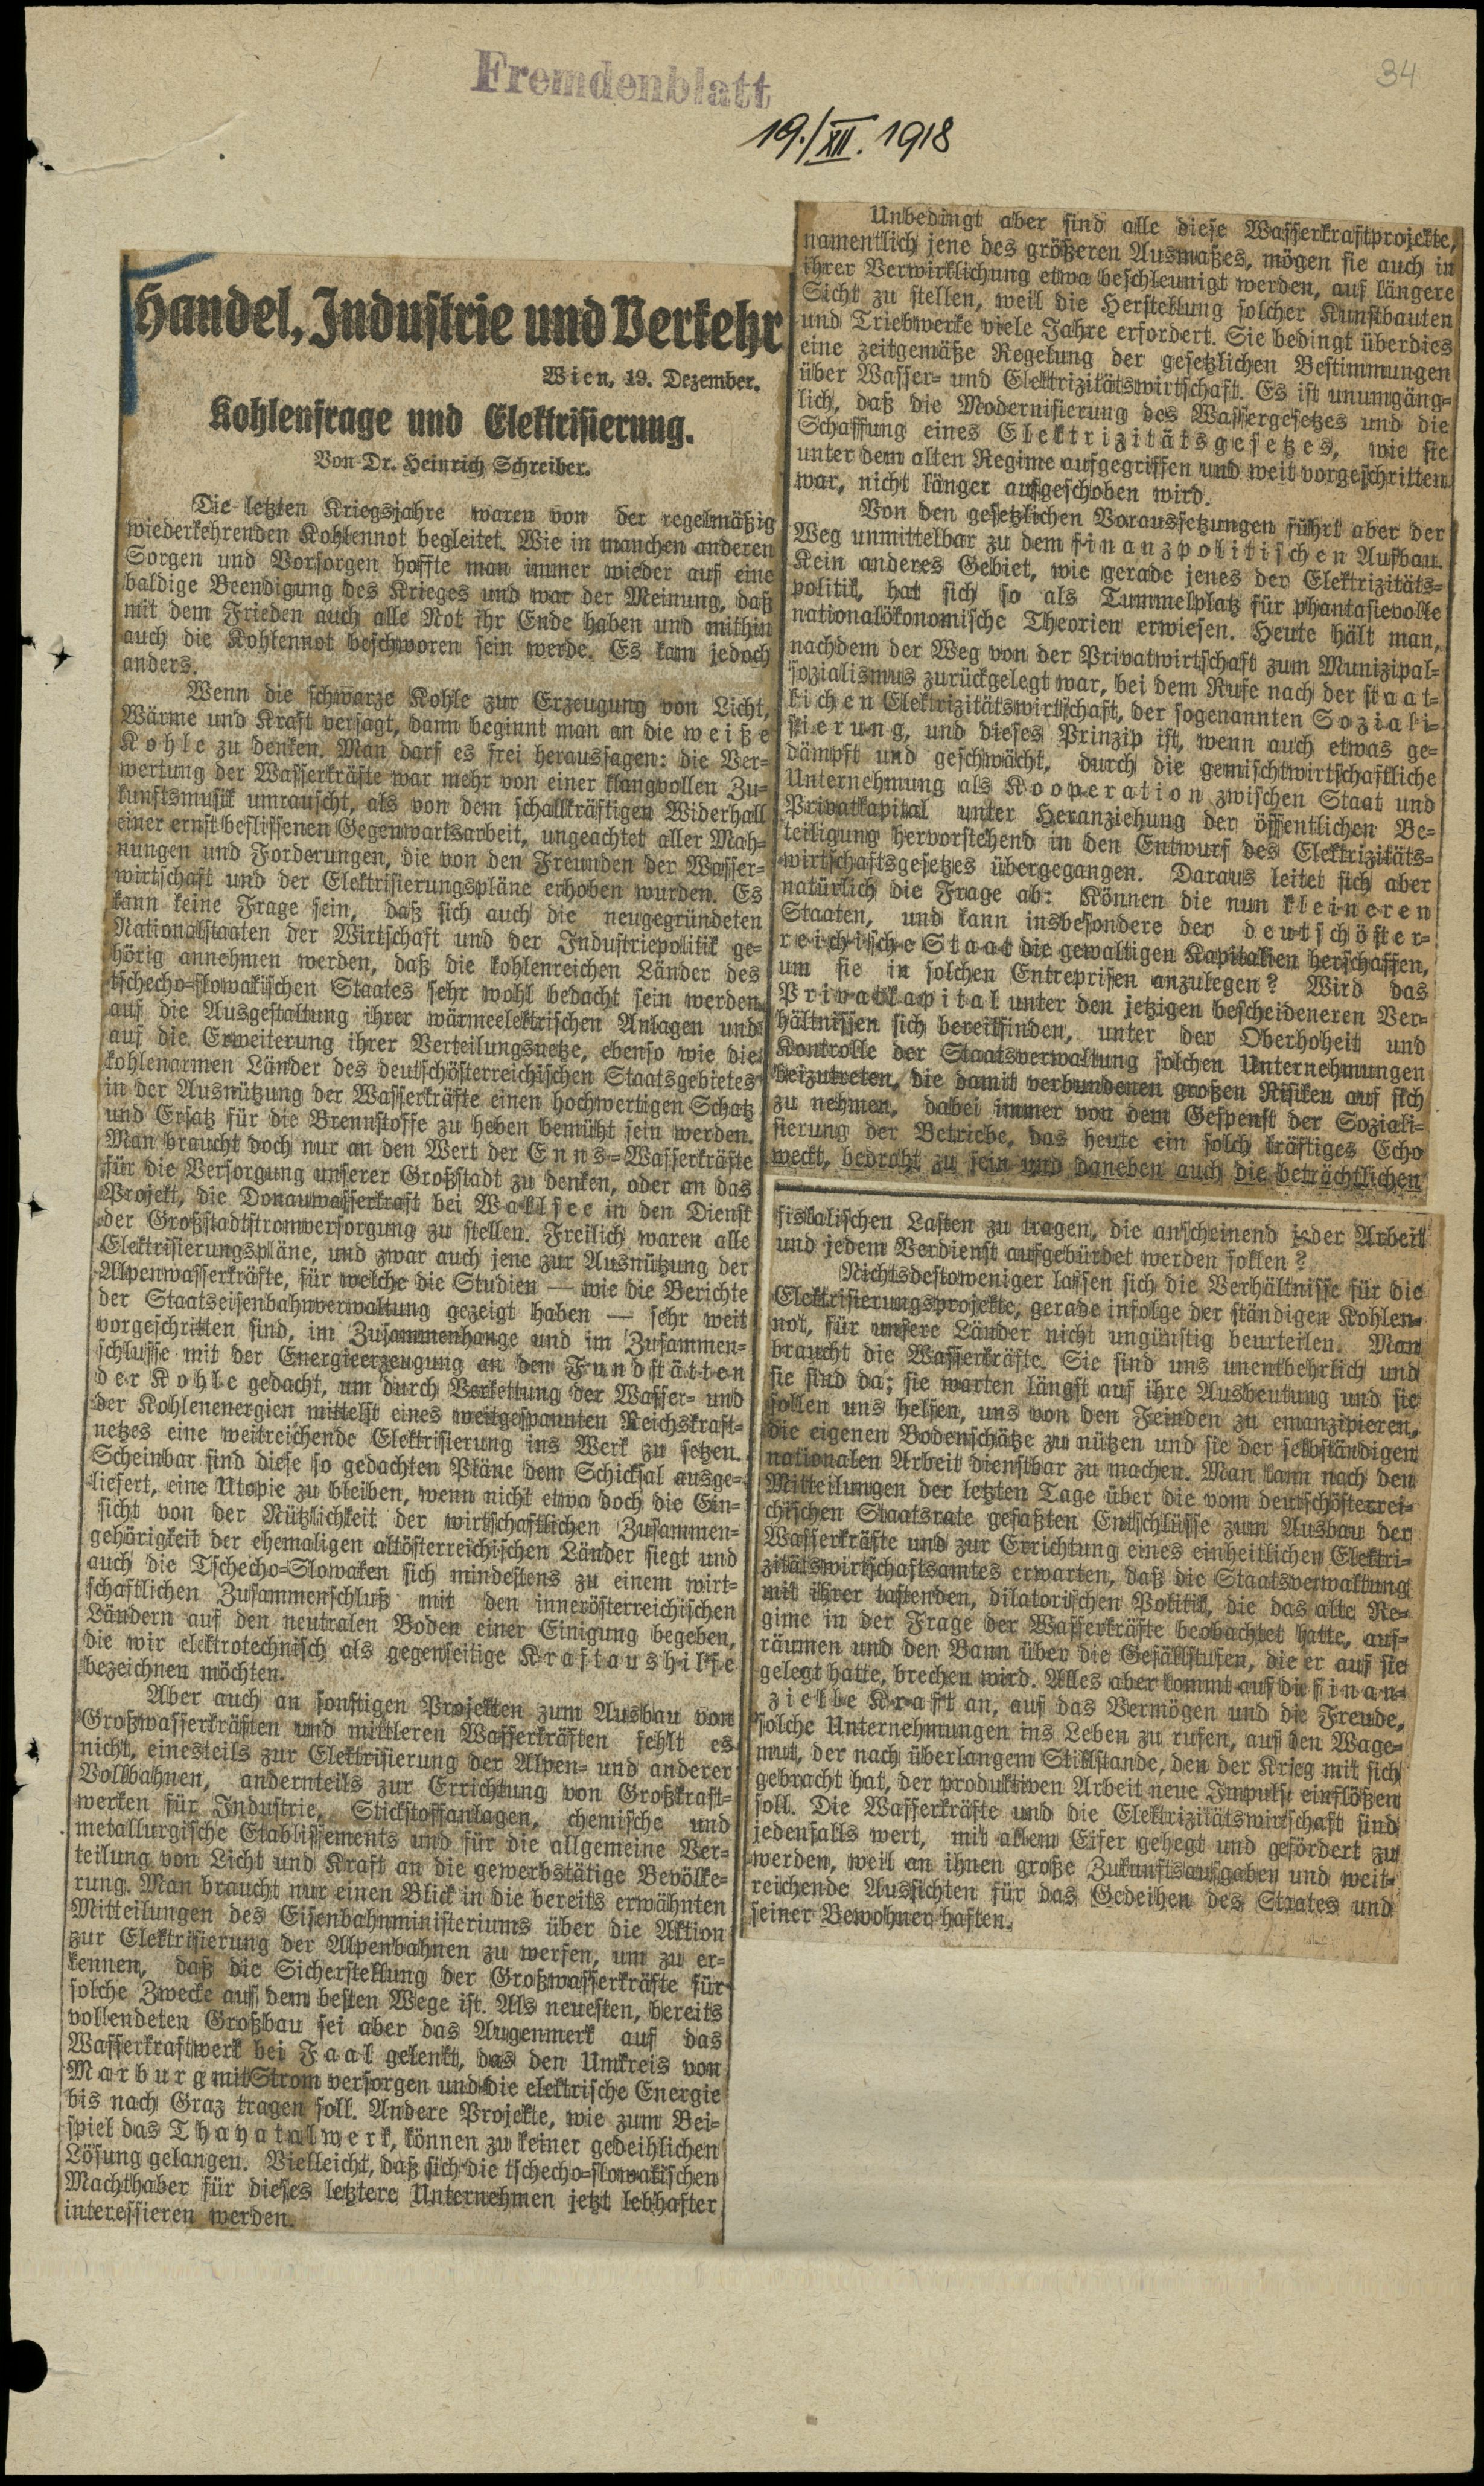 Fremdenblatt
34
19./XII. 1918
Handel, Industrie und Verkehr
Wien, 19. Dezember.
Kohlenfrage und Elektrisierung.
Von Dr. Heinrich Schreiber.
Die letzten Kriegsjahre waren von der regelmäßig
wiederkehrenden Kohlennot begleitet. Wie in manchen anderen
Sorgen und Vorsorgen hoffte man immer wieder auf eine
baldige Beendigung des Krieges und war der Meinung, daß
mit dem Frieden auch alle Not ihr Ende haben und mithin
auch die Kohlennot beschworen sein werde. Es kam jedoch
anders.
Wenn die schwarze Kohle zur Erzeugung von Licht,
Wärme und Kraft versagt, dann beginnt man an die weiße
Kohle zu denken. Man darf es frei heraussagen: die Ver-
wertung der Wasserkräfte war mehr von einer klangvollen Zu-
kunftsmusik umrauscht, als von dem schallkräftigen Widerhall
einer ernst beflissenen Gegenwartsarbeit, ungeachtet aller Mah-
nungen und Forderungen, die von den Freunden der Wasser-
wirtschaft und der Elektrisierungspläne erhoben wurden. Es
kann keine Frage sein, daß sich auch die neugegründeten
Nationalstaaten der Wirtschaft und der Industriepolitik ge-
hörig annehmen werden, daß die kohlenreichen Länder des
tschecho-slowakischen Staates sehr wohl bedacht sein werden
auf die Ausgestaltung ihrer wärmeelektrischen Anlagen und
auf die Erweiterung ihrer Verteilungsnetze, ebenso wie die
kohlenarmen Länder des deutschösterreichischen Staatsgebietes
in der Ausnützung der Wasserkräfte einen hochwertigen Schatz
und Ersatz für die Brennstoffe zu heben bemüht sein werden.
Man braucht doch nur an den Wert der Enns-Wasserkräfte
für die Versorgung unserer Großstadt zu denken, oder an das
Projekt, die Donauwasserkraft bei Wallsee in den Dienst
der Großstadtstromversorgung zu stellen. Freilich waren alle
Elektrisierungspläne, und zwar auch jene zur Ausnützung der
Alpenwasserkräfte, für welche die Studien — wie die Berichte
der Staatseisenbahnverwaltung gezeigt haben — sehr weit
vorgeschritten sind, im Zusammenhange und im Zusammen-
schlusse mit der Energieerzeugung an den Fundstätten
der Kohle gedacht, um durch Verkettung der Wasser- und
der Kohlenenergien mittelst eines weitgespannten Reichskraft-
netzes eine weitreichende Elektrisierung ins Werk zu setzen.
Scheinbar sind diese so gedachten Pläne dem Schicksal ausge-
liefert, eine Utopie zu bleiben, wenn nicht etwa doch die Ein-
sicht von der Nützlichkeit der wirtschaftlichen Zusammen-
gehörigkeit der ehemaligen altösterreichischen Länder siegt und
auch die Tschecho-Slowaken sich mindestens zu einem wirt-
schaftlichen Zusammenschluß mit den innerösterreichischen
Ländern auf den neutralen Boden einer Einigung begeben,
die wir elektrotechnisch als gegenseitige Kraftaushilfe
bezeichnen möchten.
Aber auch an sonstigen Projekten zum Ausbau von
Großwasserkräften und mittleren Wasserkräften fehlt es
nicht, einesteils zur Elektrisierung der Alpen- und anderer
Vollbahnen, andernteils zur Errichtung von Großkraft-
werken für Industrie, Stickstoffanlagen, chemische und
metallurgische Etablissements und für die allgemeine Ver-
teilung von Licht und Kraft an die gewerbstätige Bevölke-
rung. Man braucht nur einen Blick in die bereits erwähnten
Mitteilungen des Eisenbahnministeriums über die Aktion
zur Elektrisierung der Alpenbahnen zu werfen, um zu er-
kennen, daß die Sicherstellung der Großwasserkräfte für
solche Zwecke auf dem besten Wege ist. Als neuesten, bereits
vollendeten Großbau sei aber das Augenmerk auf das
Wasserkraftwerk bei Faal gelenkt, das den Umkreis von
Marburg mit Strom versorgen und die elektrische Energie
bis nach Graz tragen soll. Andere Projekte, wie zum Bei-
spiel das Thayatalwerk, können zu keiner gedeihlichen
Lösung gelangen. Vielleicht, daß sich die tschecho-slowakischen
Machthaber für dieses letztere Unternehmen jetzt lebhafter
interessieren werden.
Unbedingt aber sind alle diese Wasserkraftprojekte,
namentlich jene des größeren Ausmaßes, mögen sie auch in
ihrer Verwirklichung etwa beschleunigt werden, auf längere
Sicht zu stellen, weil die Herstellung solcher Kunstbauten
und Triebwerke viele Jahre erfordert. Sie bedingt überdies
eine zeitgemäße Regelung der gesetzlichen Bestimmungen
über Wasser- und Elektrizitätswirtschaft. Es ist unumgäng-
lich, daß die Modernisierung des Wassergesetzes und die
Schaffung eines Elektrizitätsgesetzes, wie sie
unter dem alten Regime aufgegriffen und weit vorgeschritten
war, nicht länger aufgeschoben wird.
Von den gesetzlichen Voraussetzungen führt aber der
Weg unmittelbar zu dem finanzpolitischen Aufbau.
Kein anderes Gebiet, wie gerade jenes der Elektrizitäts-
politik, hat sich so als Tummelplatz für phantasievolle
nationalökonomische Theorien erwiesen. Heute hält man,
nachdem der Weg von der Privatwirtschaft zum Munizipal-
sozialismus zurückgelegt war, bei dem Rufe nach der staat-
lichen Elektrizitätswirtschaft, der sogenannten Soziali-
sierung, und dieses Prinzip ist, wenn auch etwas ge-
dämpft und geschwächt, durch die gemischtwirtschaftliche
Unternehmung als Kooperation zwischen Staat und
Privatkapital unter Heranziehung der öffentlichen Be-
teiligung hervorstechend in den Entwurf des Elektrizitäts-
wirtschaftsgesetzes übergegangen. Daraus leitet sich aber
natürlich die Frage ab: Können die nun kleineren
Staaten, und kann insbesondere der deutschöster-
reichische Staat die gewaltigen Kapitalien herschaffen,
um sie in solchen Entreprisen anzulegen? Wird das
Privatkapital unter den jetzigen bescheideneren Ver-
hältnissen sich bereitfinden, unter der Oberhoheit und
Kontrolle der Staatsverwaltung solchen Unternehmungen
beizutreten, die damit verbundenen großen Risiken auf sich
zu nehmen, dabei immer von dem Gespenst der Soziali-
sierung der Betriebe, das heute ein solch kräftiges Echo
weckt, bedroht zu sein und daneben auch die beträchtlichen
fiskalischen Lasten zu tragen, die anscheinend jeder Arbeit
und jedem Verdienst aufgebürdet werden sollen?
Nichtsdestoweniger lassen sich die Verhältnisse für die
Elektrisierungsprojekte, gerade infolge der ständigen Kohlen-
not, für unsere Länder nicht ungünstig beurteilen. Man
braucht die Wasserkräfte. Sie sind uns unentbehrlich und
sie sind da; sie warten längst auf ihre Ausbeutung und sie
sollen uns helfen, uns von den Feinden zu emanzipieren,
die eigenen Bodenschätze zu nützen und sie der selbständigen
nationalen Arbeit dienstbar zu machen. Man kann nach den
Mitteilungen der letzten Tage über die vom deutschösterrei-
chischen Staatsrate gefaßten Entschlüsse zum Ausbau der
Wasserkräfte und zur Errichtung eines einheitlichen Elektri-
zitätswirtschaftsamtes erwarten, daß die Staatsverwaltung
mit ihrer tastenden, dilatorischen Politik, die das alte Re-
gime in der Frage der Wasserkräfte beobachtet hatte, auf-
räumen und den Bann über die Gefällstufen, die er auf sie
gelegt hatte, brechen wird. Alles aber kommt auf die finan-
zielle Kraft an, auf das Vermögen und die Freude,
solche Unternehmungen ins Leben zu rufen, auf den Wage-
mut, der nach überlangem Stillstande, den der Krieg mit sich
gebracht hat, der produktiven Arbeit neue Impulse einflößen
soll. Die Wasserkräfte und die Elektrizitätswirtschaft sind
jedenfalls wert, mit allem Eifer gehegt und gefördert zu
werden, weil an ihnen große Zukunftsaufgaben und weit-
reichende Aussichten für das Gedeihen des Staates und
seiner Bewohner haften.